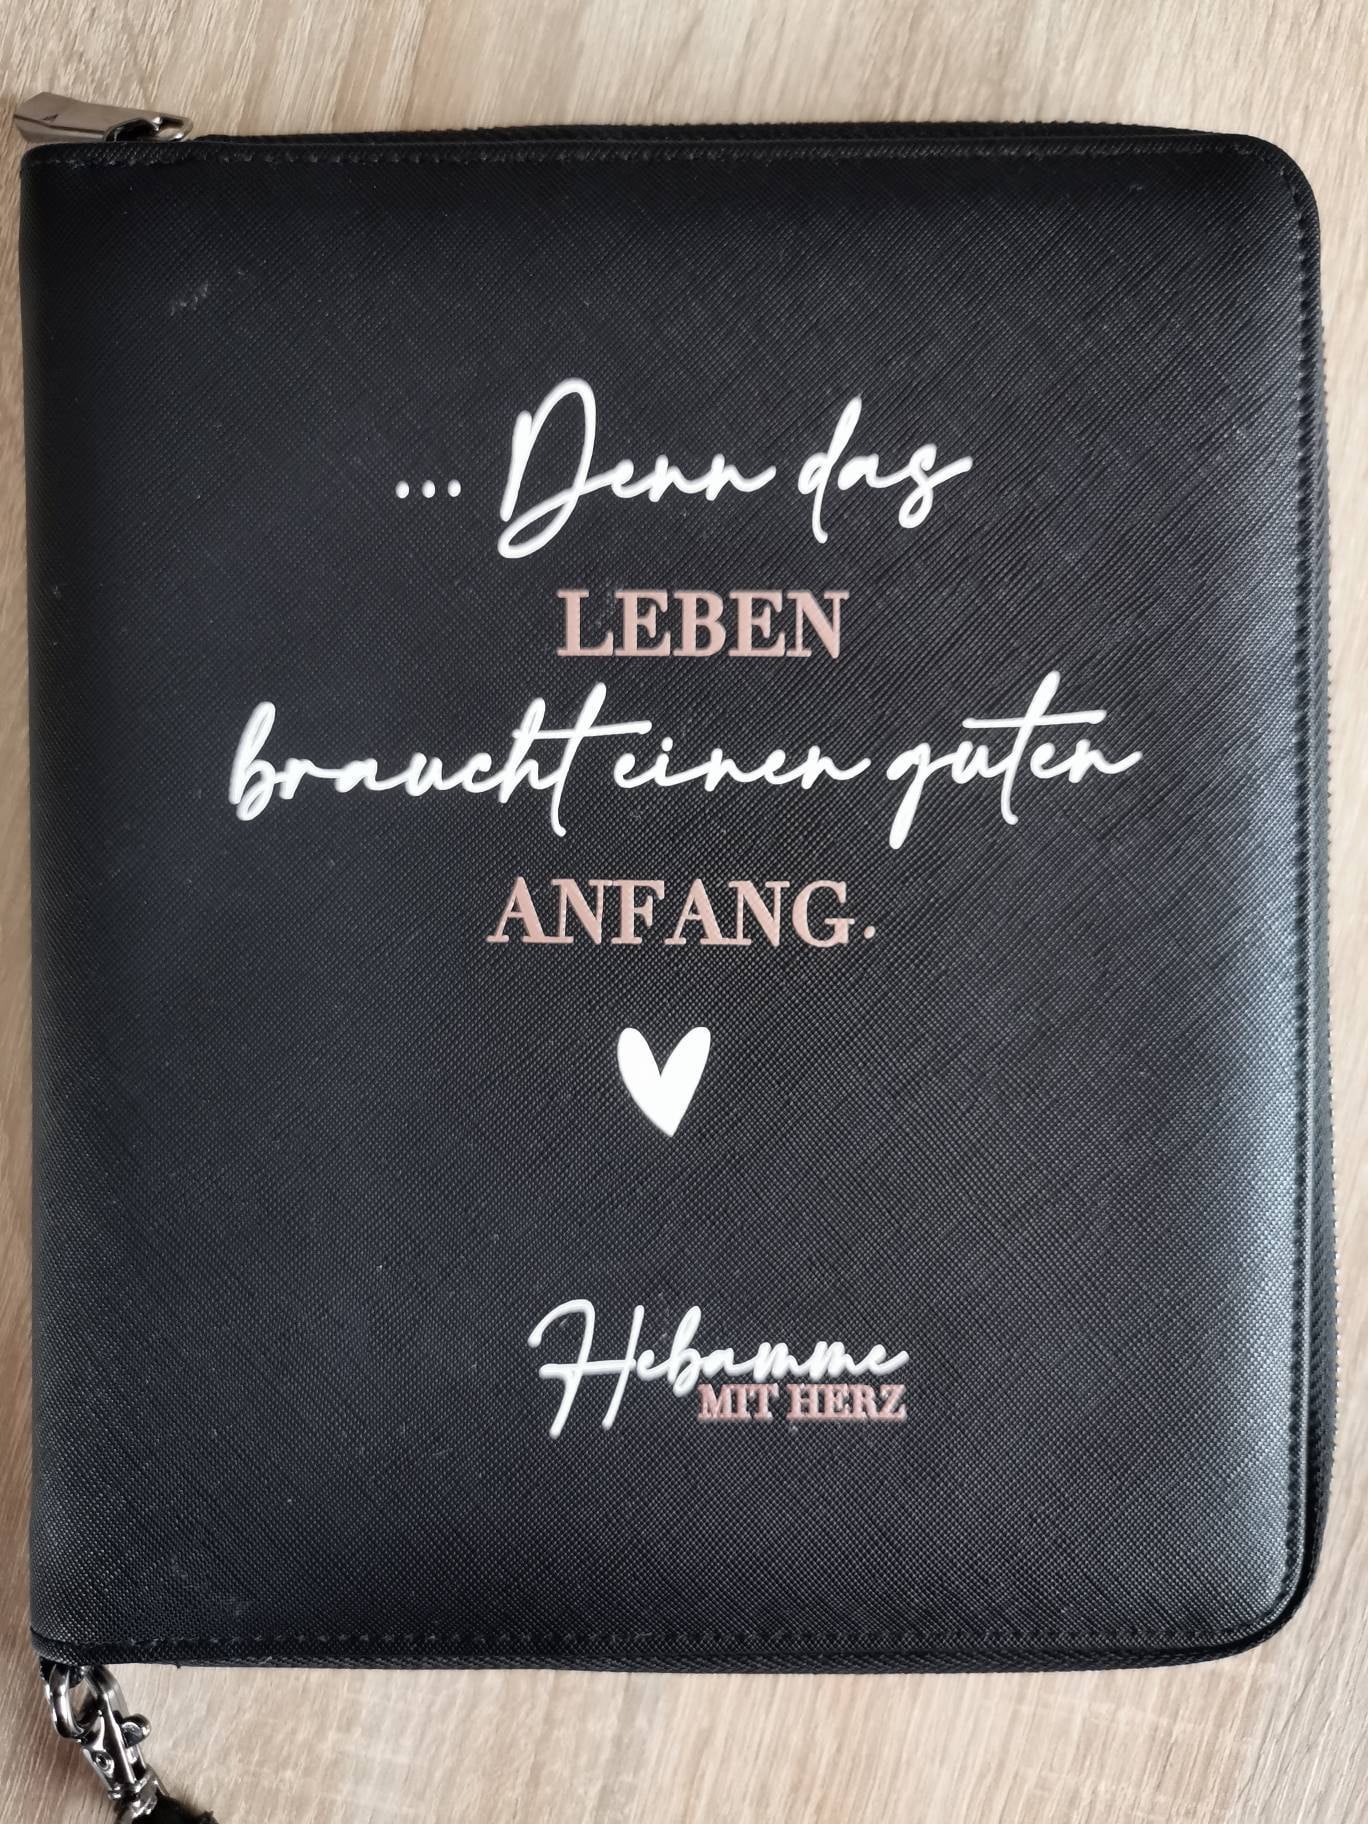 ... Denn das
LEBEN
braucht einen guten
ANFANG.
Hebamme
MIT HERZ